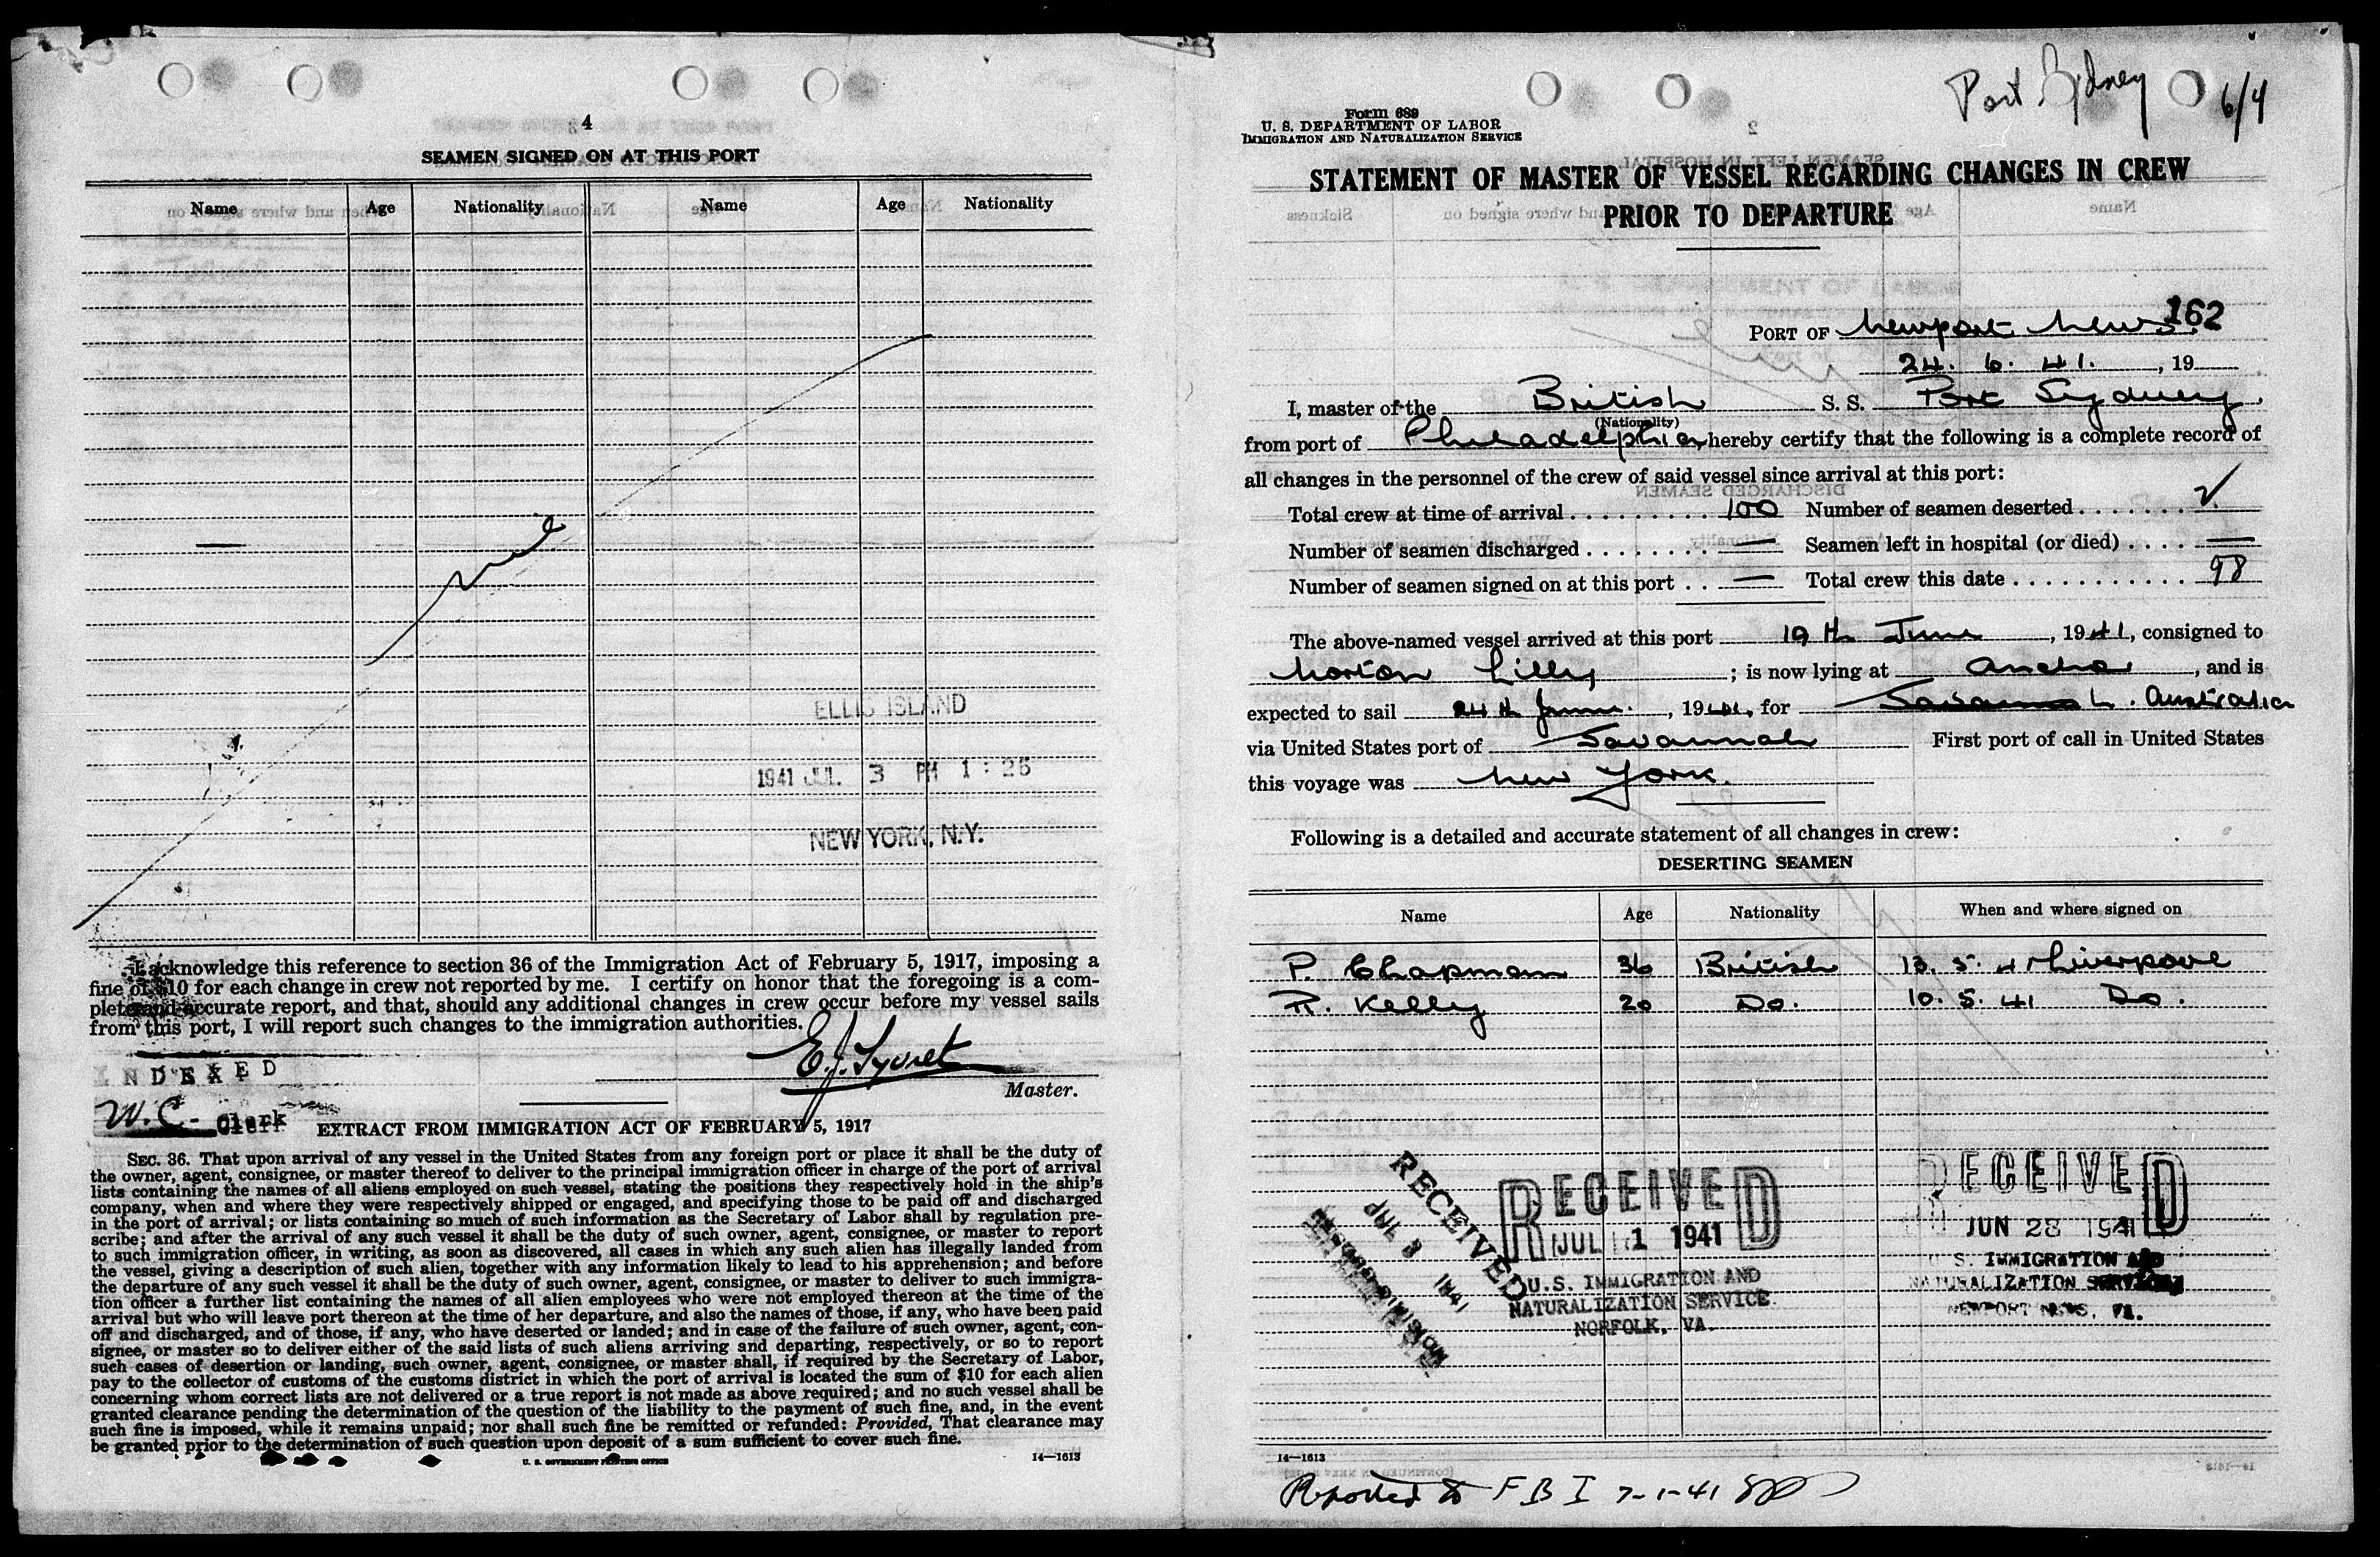 4
SEAMEN SIGNED ON AT THIS PORT
Name Age Nationality Name Age Nationality
—
ELLIS ISLAND
1941 JUL. 3 PM 1:26
NEW YORK, N.Y.
I acknowledge this reference to section 36 of the Immigration Act of February 5, 1917, imposing a
fine of $10 for each change in crew not reported by me. I certify on honor that the foregoing is a com-
plete and accurate report, and that, should any additional changes in crew occur before my vessel sails
from this port, I will report such changes to the immigration authorities.
E.J. Syvret
Master.
INDEXED
W.C. Clerk
EXTRACT FROM IMMIGRATION ACT OF FEBRUARY 5, 1917
SEC. 36. That upon arrival of any vessel in the United States from any foreign port or place it shall be the duty of
the owner, agent, consignee, or master thereof to deliver to the principal immigration officer in charge of the port of arrival
lists containing the names of all aliens employed on such vessel, stating the positions they respectively hold in the ship's
company, when and where they were respectively shipped or engaged, and specifying those to be paid off and discharged
in the port of arrival; or lists containing so much of such information as the Secretary of Labor shall by regulation pre-
scribe; and after the arrival of any such vessel it shall be the duty of such owner, agent, consignee, or master to report
to such immigration officer, in writing, as soon as discovered, all cases in which any such alien has illegally landed from
the vessel, giving a description of such alien, together with any information likely to lead to his apprehension; and before
the departure of any such vessel it shall be the duty of such owner, agent, consignee, or master to deliver to such immigra-
tion officer a further list containing the names of all alien employees who were not employed thereon at the time of the
arrival but who will leave port thereon at the time of her departure, and also the names of those, if any, who have been paid
off and discharged, and of those, if any, who have deserted or landed; and in case of the failure of such owner, agent, con-
signee, or master so to deliver either of the said lists of such aliens arriving and departing, respectively, or so to report
such cases of desertion or landing, such owner, agent, consignee, or master shall, if required by the Secretary of Labor,
pay to the collector of customs of the customs district in which the port of arrival is located the sum of $10 for each alien
concerning whom correct lists are not delivered or a true report is not made as above required; and no such vessel shall be
granted clearance pending the determination of the question of the liability to the payment of such fine, and, in the event
such fine is imposed, while it remains unpaid; nor shall such fine be remitted or refunded: Provided, That clearance may
be granted prior to the determination of such question upon deposit of a sum sufficient to cover such fine.
U. S. GOVERNMENT PRINTING OFFICE 14—1613
Port Sydney 6/4
Form 689
U. S. DEPARTMENT OF LABOR
IMMIGRATION AND NATURALIZATION SERVICE
STATEMENT OF MASTER OF VESSEL REGARDING CHANGES IN CREW
PRIOR TO DEPARTURE
162
PORT OF Newport News
24. 6. 41., 19
I, master of the British S. S. Port Sydney.
(Nationality)
from port of Philadelphia, hereby certify that the following is a complete record of
all changes in the personnel of the crew of said vessel since arrival at this port:
Total crew at time of arrival 100 Number of seamen deserted 2
Number of seamen discharged — Seamen left in hospital (or died) —
Number of seamen signed on at this port — Total crew this date 98
The above-named vessel arrived at this port 19th June, 1941, consigned to
Norton Lilly; is now lying at Anchor, and is
expected to sail 24th June., 1941, for Savannah. Australia
via United States port of Savannah First port of call in United States
this voyage was New York.
Following is a detailed and accurate statement of all changes in crew:
DESERTING SEAMEN
Name Age Nationality When and where signed on
P. Chapman 36 British 13. 5. 41 Liverpool
R. Kelly 20 Do. 10. 5. 41 Do.
RECEIVED
JUL 3 1941
RECEIVED
JUL 1 1941
U.S. IMMIGRATION AND
NATURALIZATION SERVICE
NORFOLK, VA.
RECEIVED
JUN 28 1941
U. S. IMMIGRATION AND
NATURALIZATION SERVICE
NEWPORT NEWS, VA.
14—1613
Reported to FBI 7-1-41